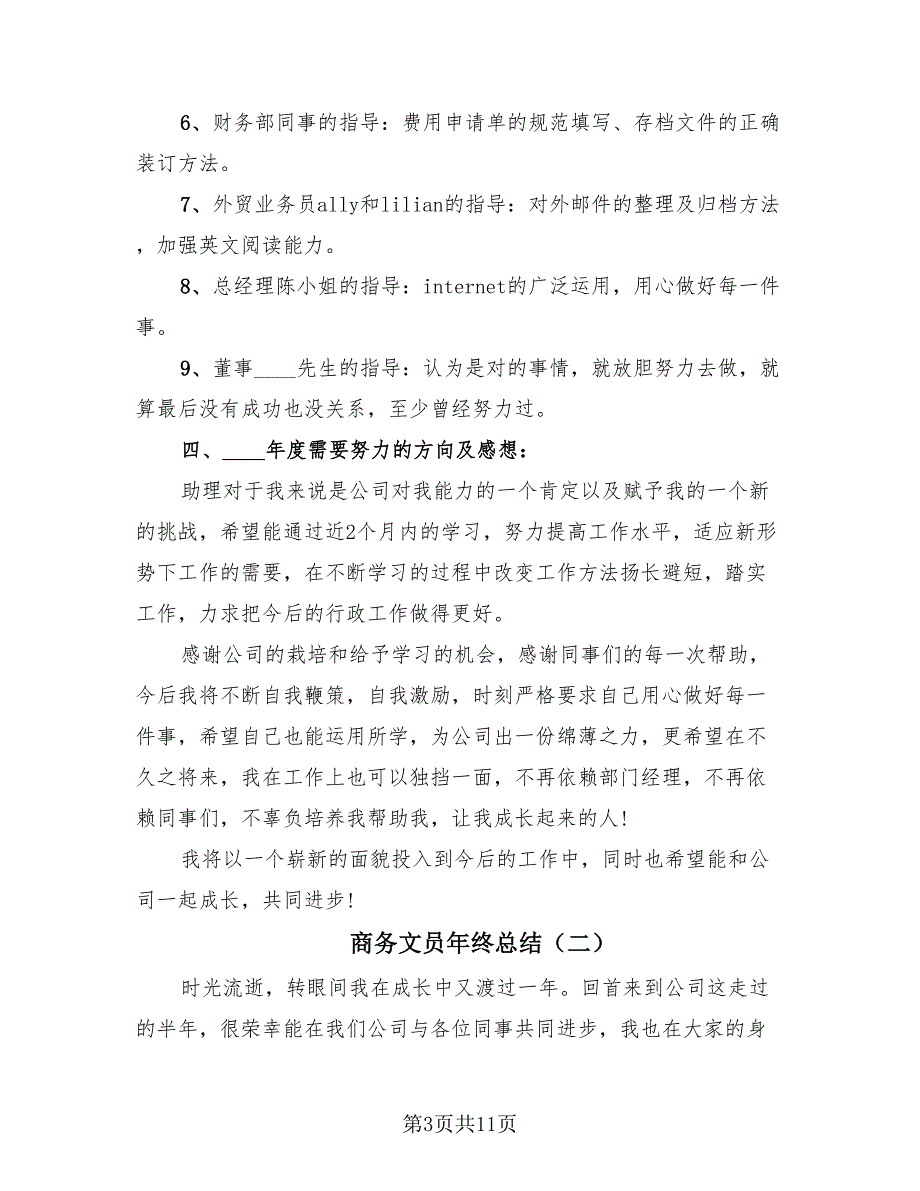 6、财务部同事的指导：费用申请单的规范填写、存档文件的正确
装订方法。
7、外贸业务员ally和lilian的指导：对外邮件的整理及归档方法
，加强英文阅读能力。
8、总经理陈小姐的指导：internet的广泛运用，用心做好每一件
事。
9、董事____先生的指导：认为是对的事情，就放胆努力去做，就
算最后没有成功也没关系，至少曾经努力过。
四、____年度需要努力的方向及感想：
助理对于我来说是公司对我能力的一个肯定以及赋予我的一个新
的挑战，希望能通过近2个月内的学习，努力提高工作水平，适应新形
势下工作的需要，在不断学习的过程中改变工作方法扬长避短，踏实
工作，力求把今后的行政工作做得更好。
感谢公司的栽培和给予学习的机会，感谢同事们的每一次帮助，
今后我将不断自我鞭策，自我激励，时刻严格要求自己用心做好每一
件事，希望自己也能运用所学，为公司出一份绵薄之力，更希望在不
久之将来，我在工作上也可以独挡一面，不再依赖部门经理，不再依
赖同事们，不辜负培养我帮助我，让我成长起来的人!
我将以一个崭新的面貌投入到今后的工作中，同时也希望能和公
司一起成长，共同进步!
商务文员年终总结（二）
时光流逝，转眼间我在成长中又渡过一年。回首来到公司这走过
的半年，很荣幸能在我们公司与各位同事共同进步，我也在大家的身
第3页共11页